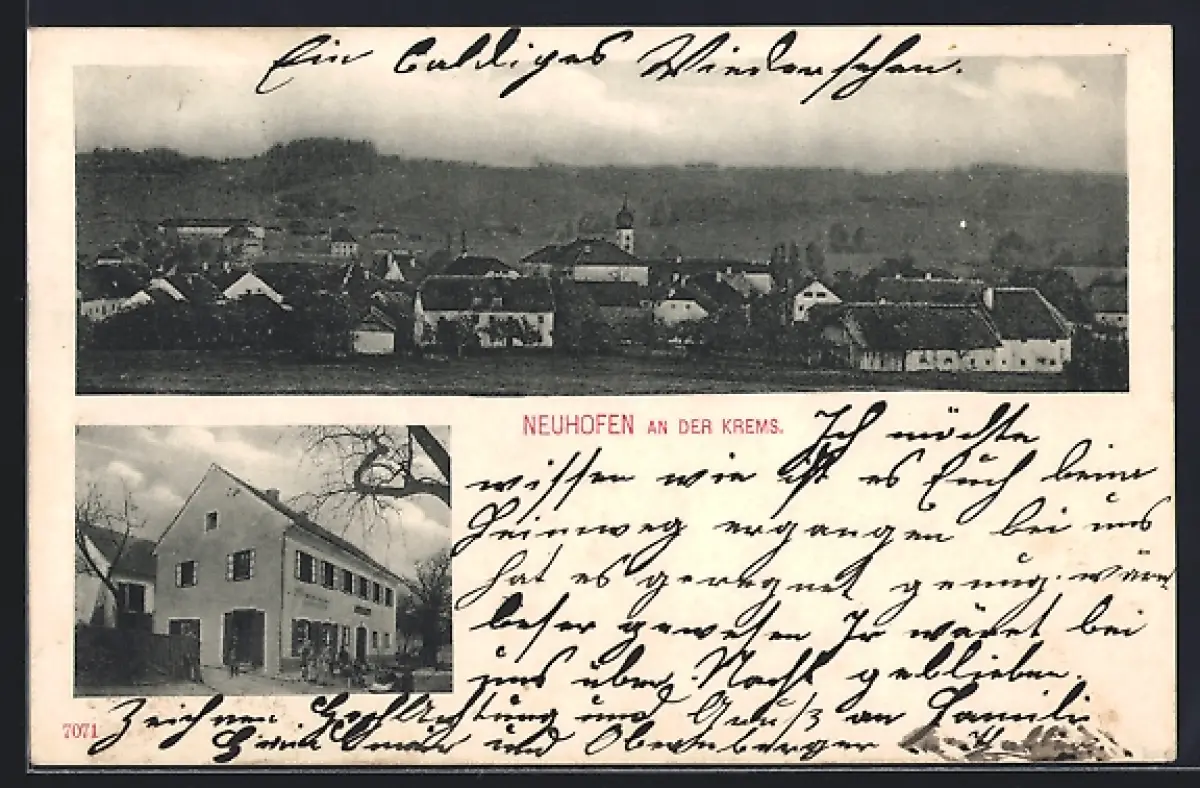 Ein baldiges Wiedersehen.
NEUHOFEN AN DER KREMS.
Ich möchte
wissen wie ist es Euch beim
Heimweg ergangen bei uns
hat es geregnet genug. wäre
beser gewesen Ir wäret bei
uns über Nacht geblieben.
Zeichnen Hochachtung und Gruß an Familie
und Obernberger
7071